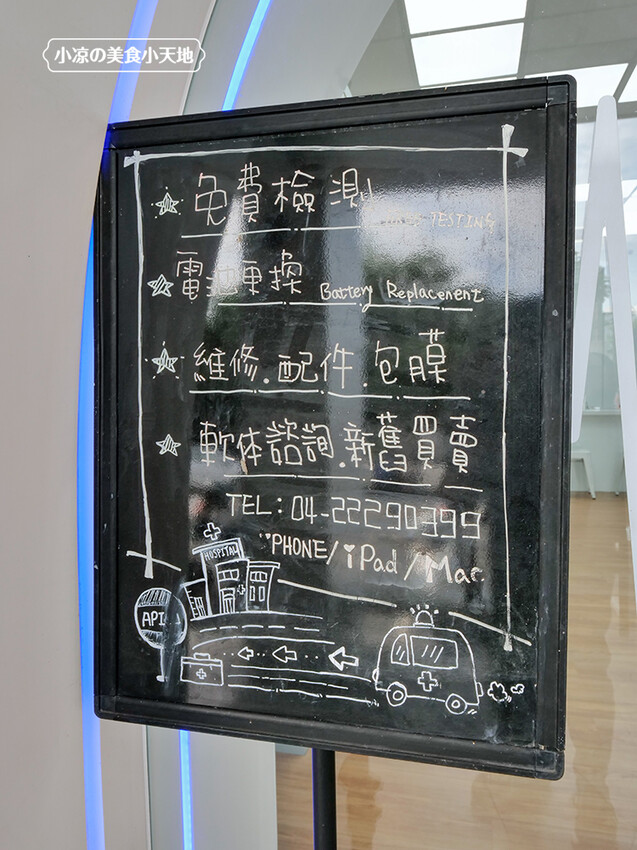 小凉の美食小天地
免費檢測
TESTING
電池更換 Battery Replacement
維修.配件.包膜
軟体諮詢.新舊買賣
TEL: 04-22290399
iPHONE/iPad/Mac
HOSPITAL
API